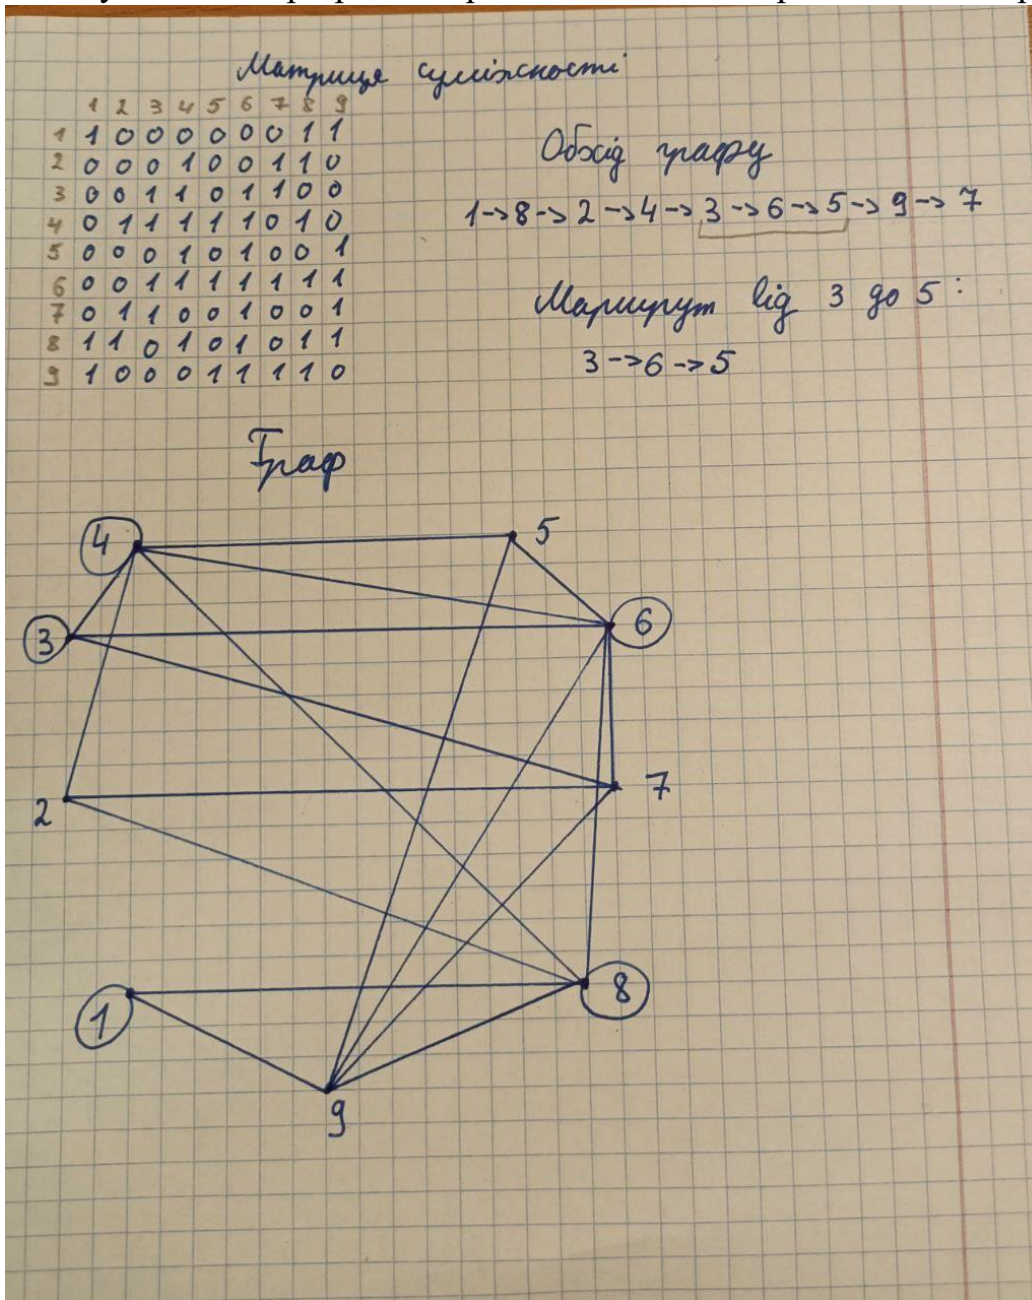 Матриця суміжності
1 2 3 4 5 6 7 8 9
1 1 0 0 0 0 0 0 1 1
2 0 0 0 1 0 0 1 1 0
3 0 0 1 1 0 1 1 0 0
4 0 1 1 1 1 1 0 1 0
5 0 0 0 1 0 1 0 0 1
6 0 0 1 1 1 1 1 1 1
7 0 1 1 0 0 1 0 0 1
8 1 1 0 1 0 1 0 1 1
9 1 0 0 0 1 1 1 1 0
Обхід графу
1->8->2->4->3->6->5->9->7
Маршрут від 3 до 5:
3->6->5
Граф
4
5
3
6
2
7
1
8
9